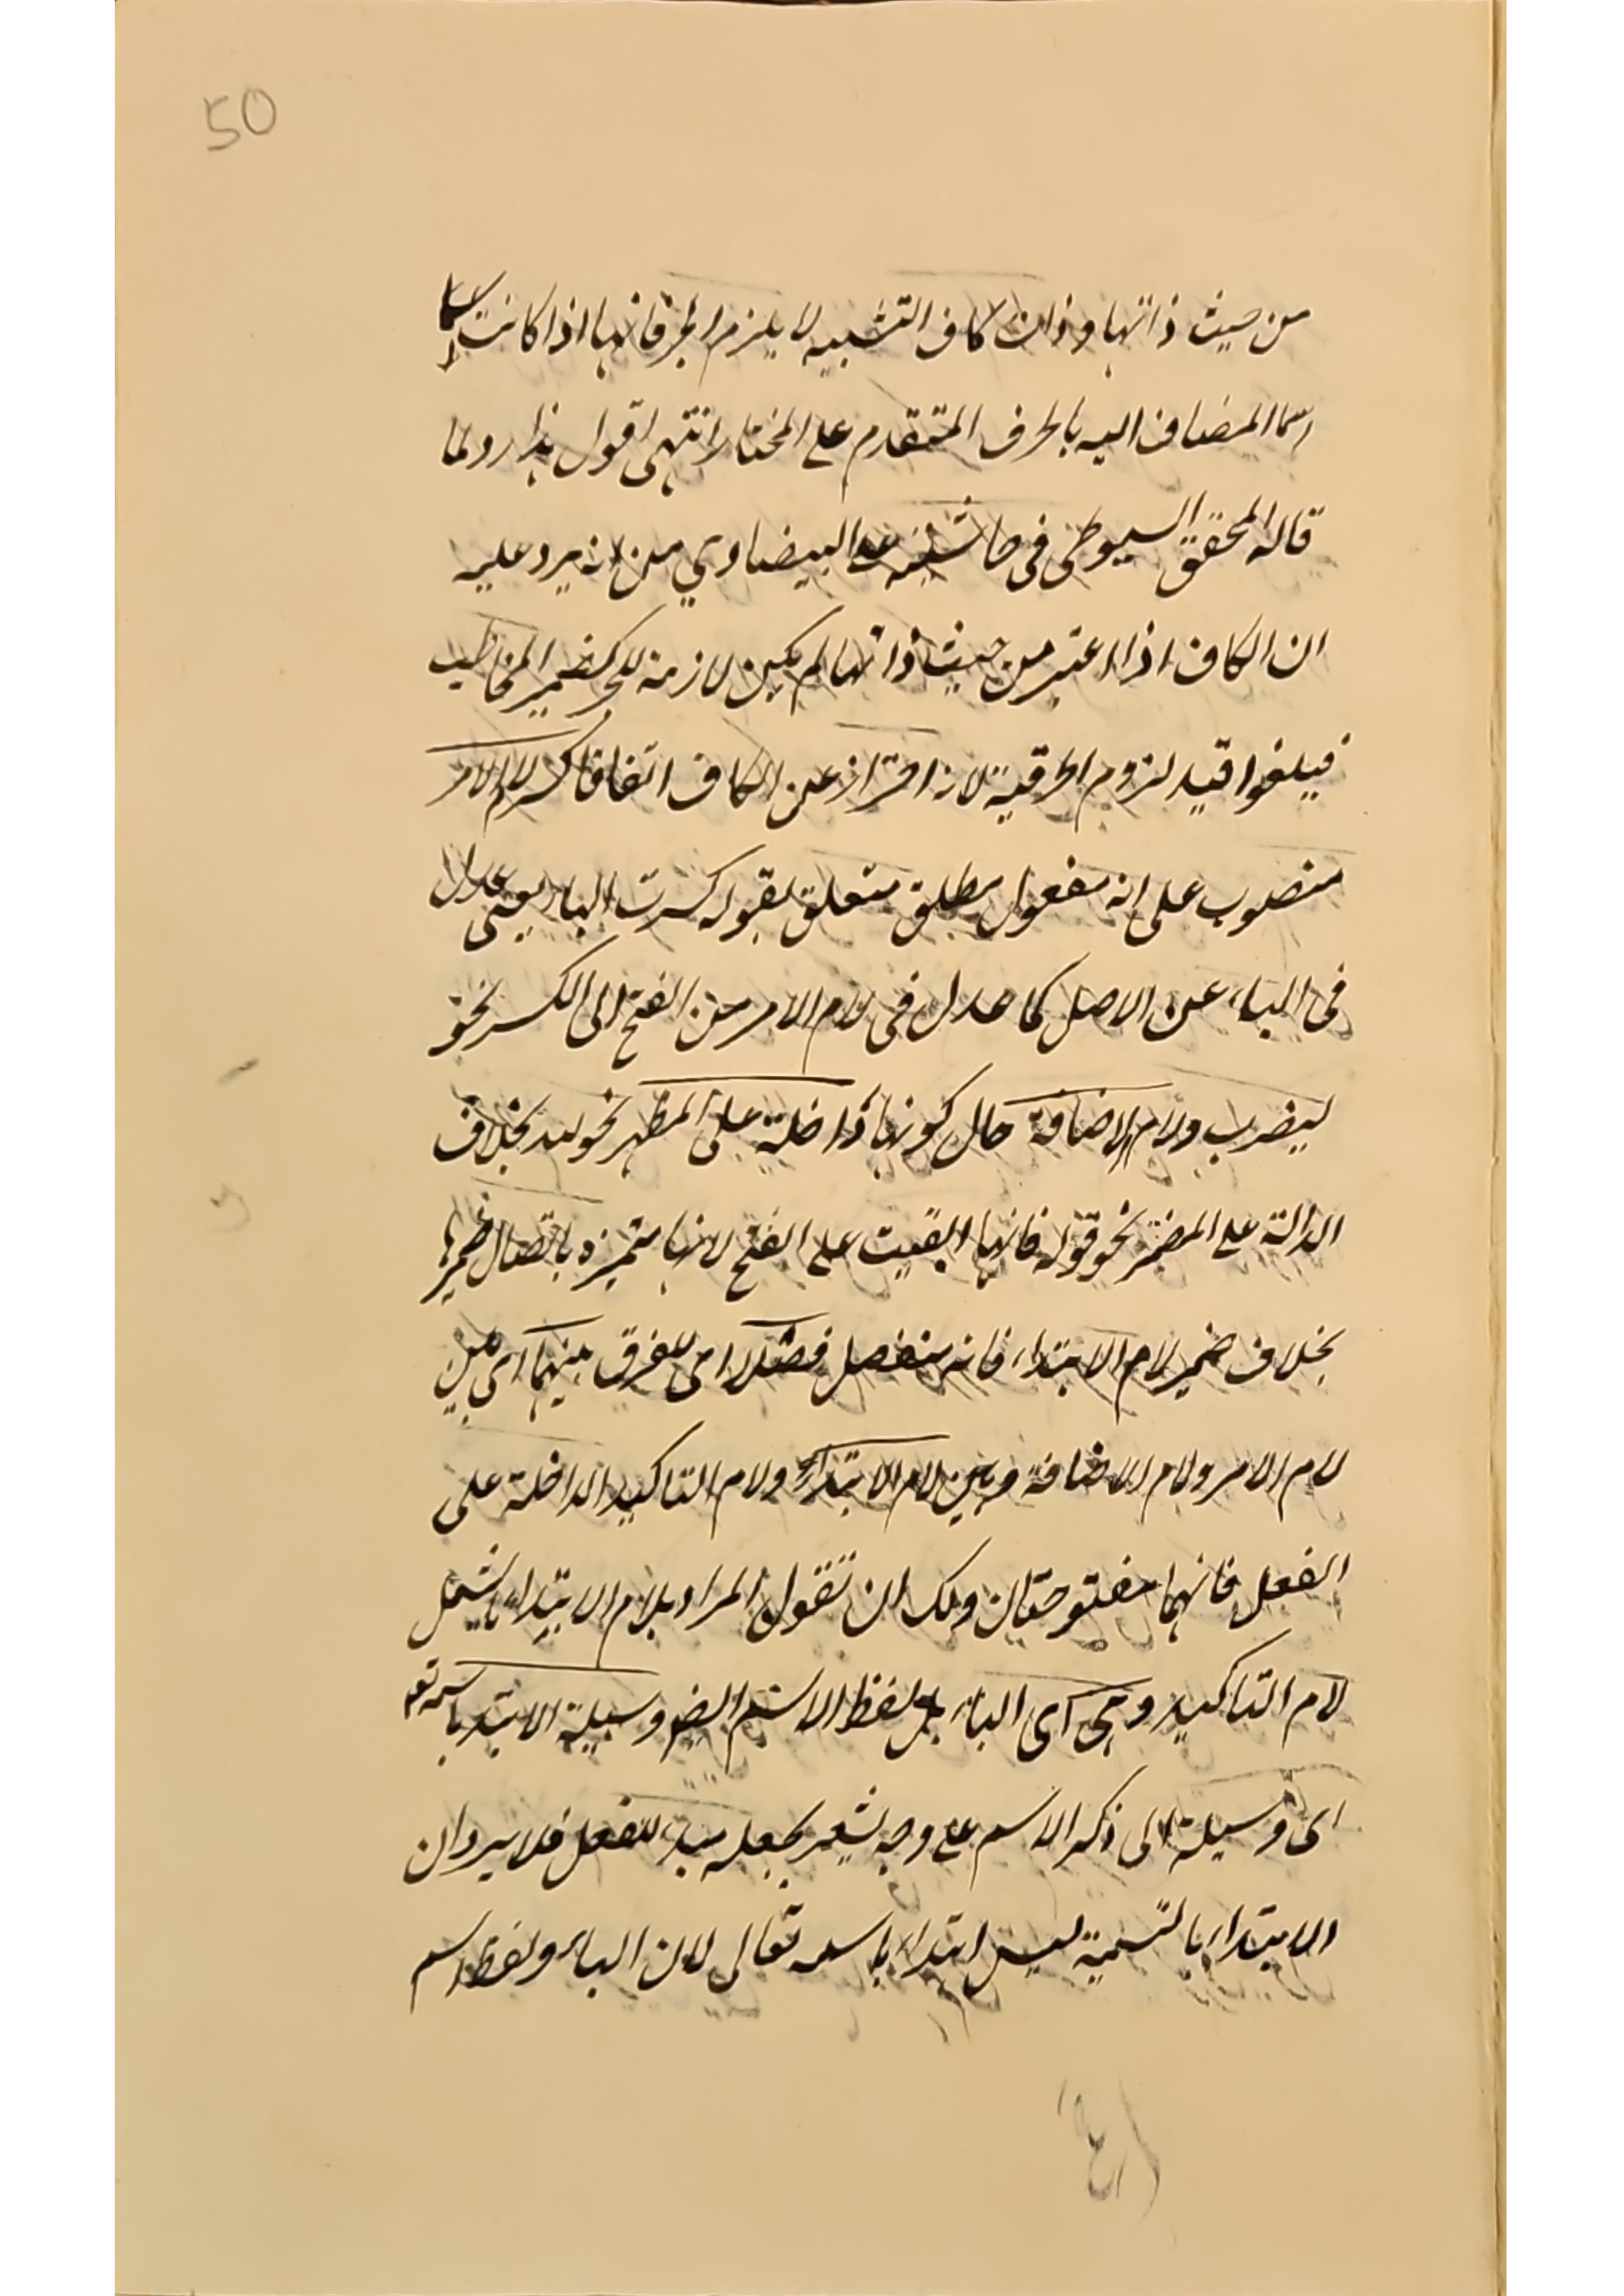 50
من حيث ذاتها وذات كاف التشبيه لا يلزم الجر فانها اذا كانت اسما
اسما المضاف اليه بالحرف المتقدم على المختار انتهى اقول هذا رد لما
قاله المحقق السيوطى فى حاشيته على البيضاوي من انه يرد عليه
ان الكاف اذا اعتبر من حيث ذاتها لم يكن لازمة للجر كضمير المخاطب
فيلغوا قيد لزوم الحرفية لانه احتراز عن الكاف اتفاقا كسر لام الامر
منصوب على انه مفعول مطلق متعلق بقوله كسرت الباء يعنى عدل
فى الباء عن الاصل كما عدل فى لام الامر من الفتح الى الكسر نحو
ليضرب ولام الاضافة حال كونها داخلة على المظهر نحو لله بخلاف
الدالة على المضمر نحو قوله فانها ابقيت على الفتح لانها متميزه باتصال ضميرها
بخلاف ضمير لام الابتداء فانه منفصل فصلا اى للفرق بينهما اى بين
لام الامر ولام الاضافة وبين لام الابتداء ولام التاكيد الداخلة على
الفعل فانهما مفتوحتان ولك ان تقول المراد بلام الابتداء ما يشمل
لام التاكيد وهى اى الباء بل لفظ الاسم ايضا وسيلة الابتداء باسمه تعالى
اى وسيلة الى ذكر الاسم على وجه يشعر بجعله مبدء للفعل فلا يرد ان
الابتداء بالتسمية ليس ابتداء باسمه تعالى لان الباء ولفظ اسم